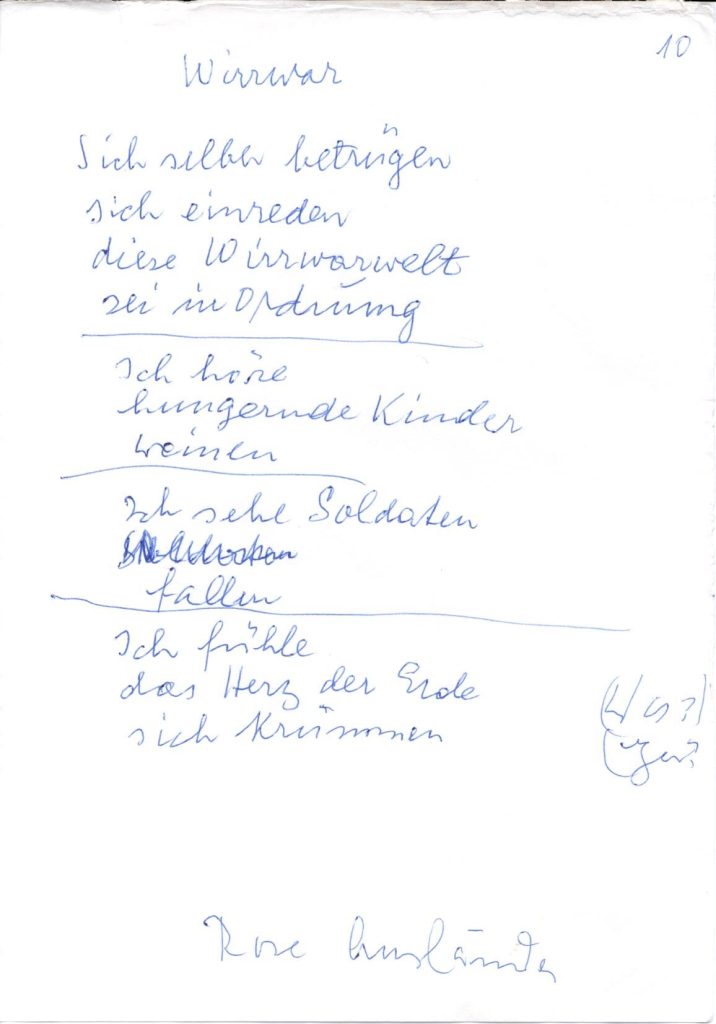 10
Wirrwar
Sich selber betrügen
sich einreden
diese Wirrwarwelt
sei in Ordnung
Ich höre
hungernde Kinder
weinen
Ich sehe Soldaten
fallen
Ich fühle
das Herz der Erde
sich krümmen
Rose Ausländer